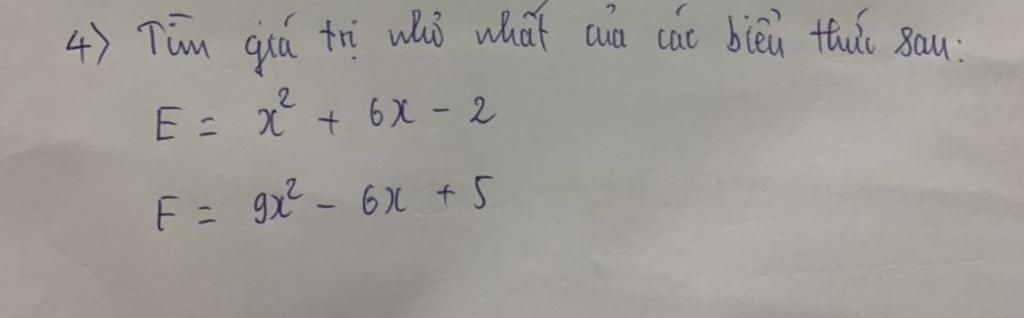 4) Tìm giá trị nhỏ nhất của các biểu thức sau:
E = x² + 6x - 2
F = 9x² - 6x + 5